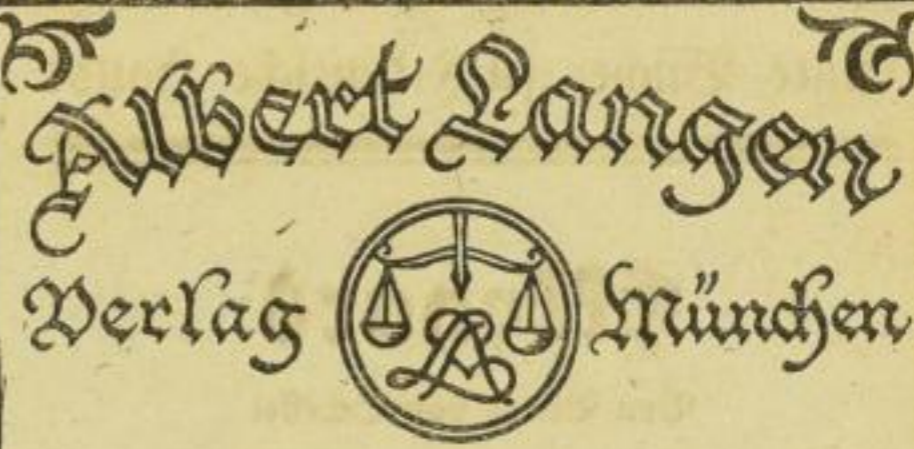 Albert Langen
Verlag München